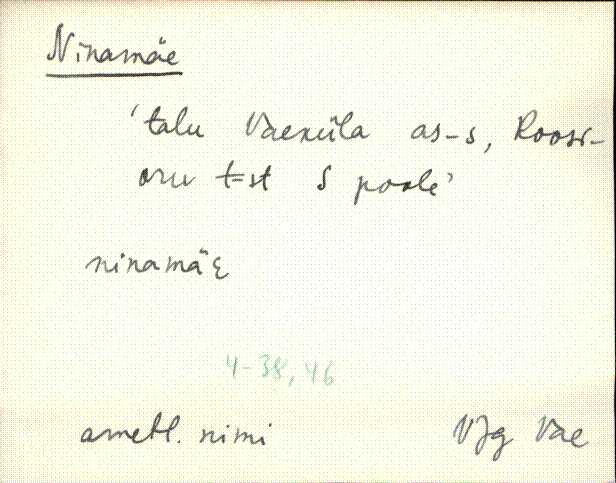 Ninamäe
'talu Vaeküla as-s, Roosi-
oru t-st S poole'
ninamäɛ
4-38, 46
ametl. nimi VJg Vae